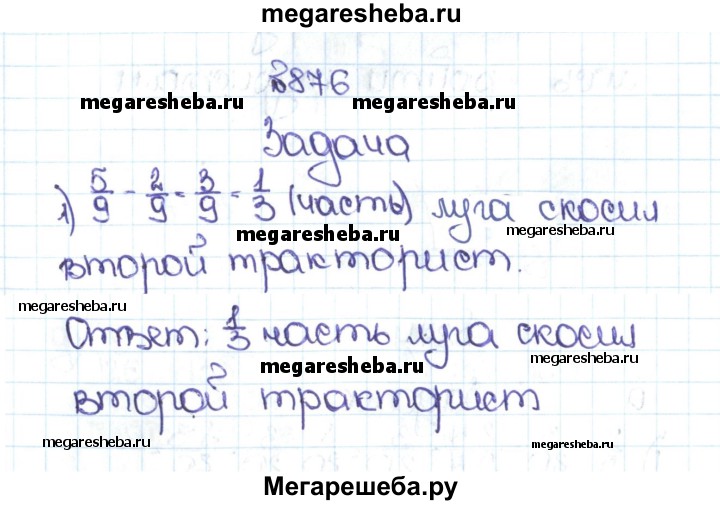 megaresheba.ru
№876
megaresheba.ru megaresheba.ru
Задача
1) 5/9 - 2/9 = 3/9 = 1/3 (часть) луга скосил
megaresheba.ru megaresheba.ru
второй тракторист.
megaresheba.ru
Ответ: 1/3 часть луга скосил
megaresheba.ru megaresheba.ru
второй тракторист
megaresheba.ru megaresheba.ru
Мегарешеба.ру